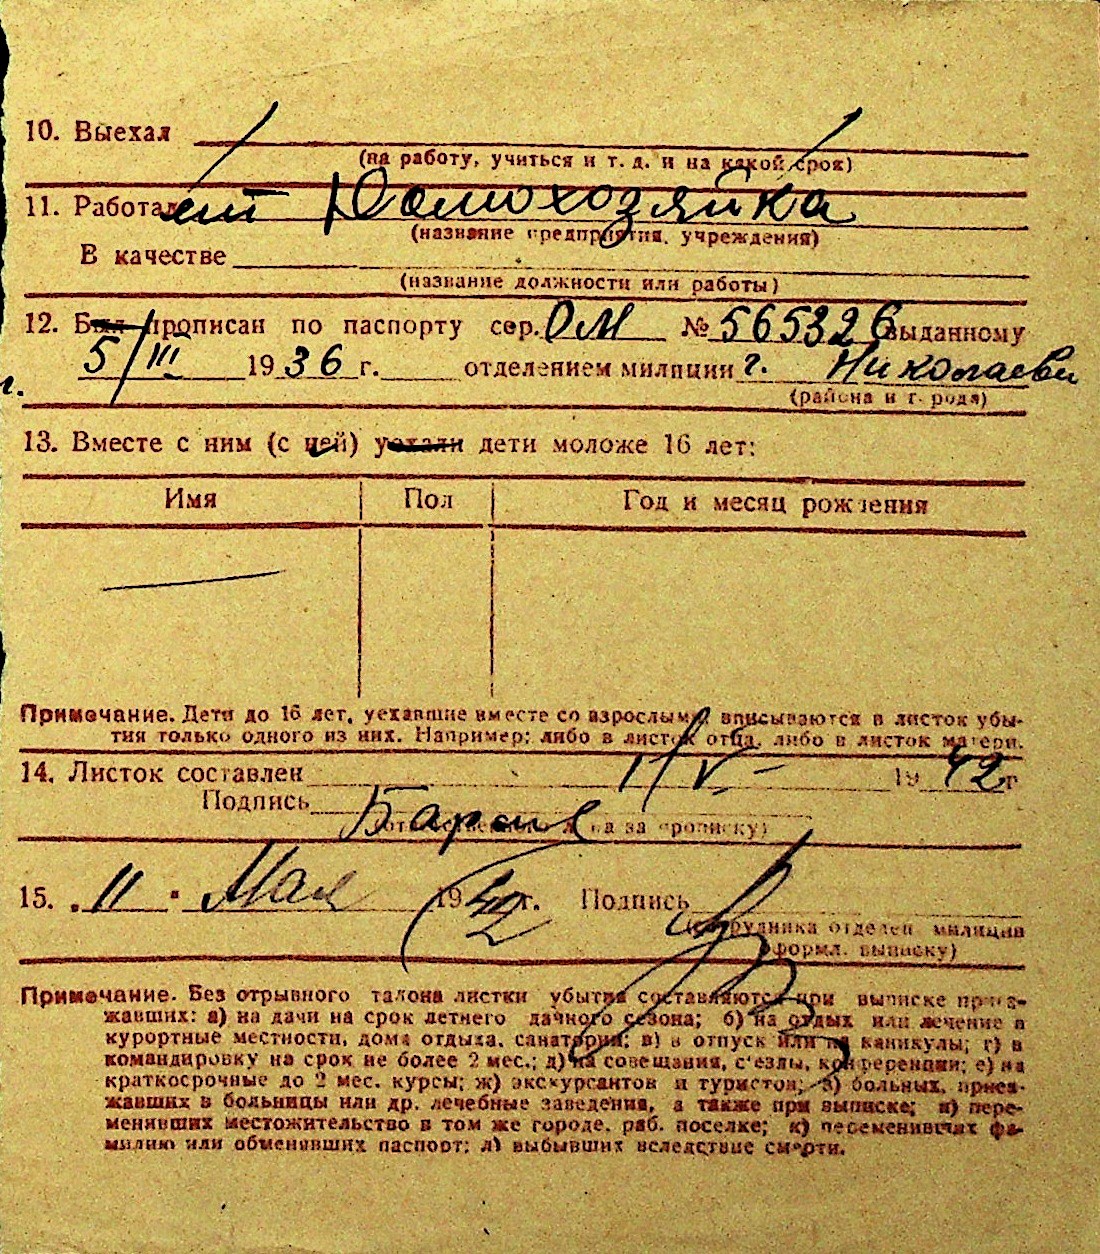 10. Выехал
(на работу, учиться и т. д. и на какой срок)
11. Работал Домохозяйка
(название предприятия, учреждения)
В качестве
(название должности или работы)
12. Был прописан по паспорту сер. ОМ № 565326 выданному
5/III 1936 г. отделением милиции г. Николаева
г.
(района и города)
13. Вместе с ним (с ней) уехали дети моложе 16 лет:
Имя Пол Год и месяц рождения
Примечание. Дети до 16 лет, уехавшие вместе со взрослыми, вписываются в листок убы-
тия только одного из них. Например: либо в листок отца, либо в листок матери.
14. Листок составлен 11/V – 1942 г
Подпись
(ответственного лица за прописку)
15. „11" Мая 1942 г. Подпись
(сотрудника отделен. милиции
оформл. выписку)
Примечание. Без отрывного талона листки убытия составляются при выписке приез-
жавших: а) на дачи на срок летнего дачного сезона; б) на отдых или лечение в
курортные местности, дома отдыха, санатории; в) в отпуск или на каникулы; г) в
командировку на срок не более 2 мес.; д) на совещания, с'езды, конференции; е) на
краткосрочные до 2 мес. курсы; ж) экскурсантов и туристов; з) больных, приез-
жавших в больницы или др. лечебные заведения, а также при выписке; и) пере-
менивших местожительство в том же городе, раб. поселке; к) переменивших фа-
милию или обменявших паспорт; л) выбывших вследствие смерти.